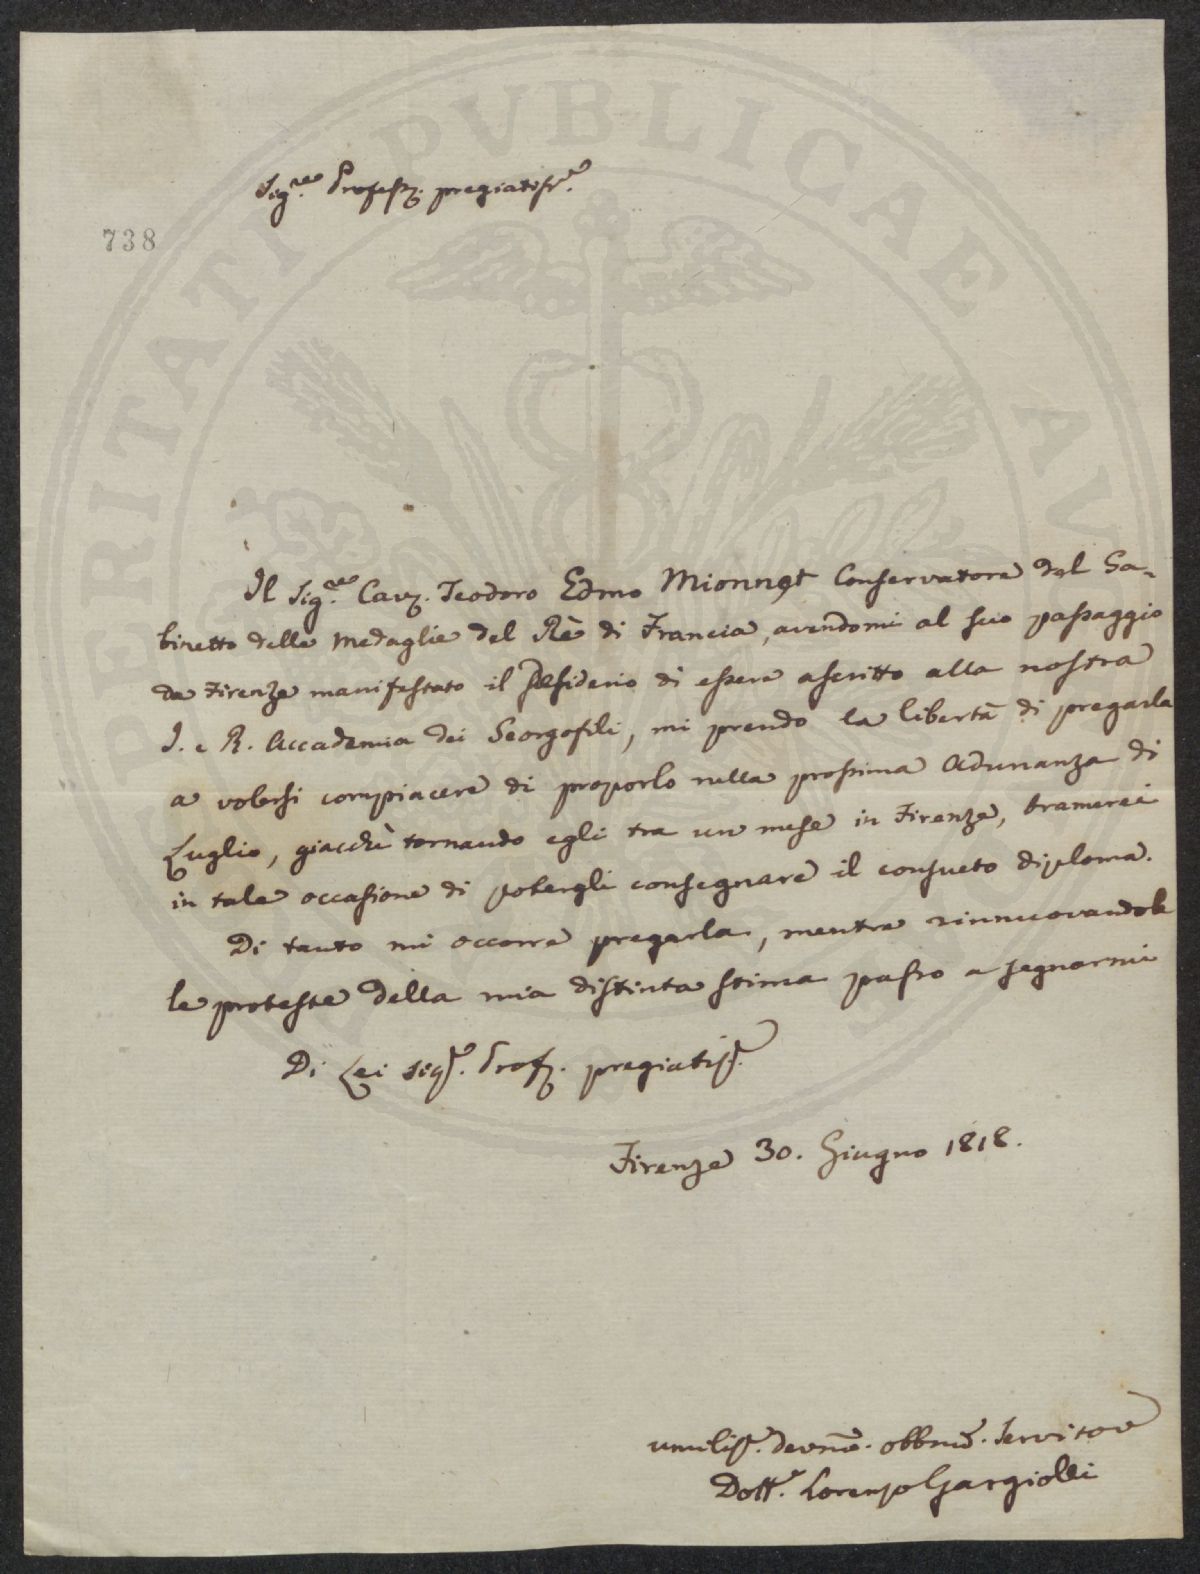 Sig.re Profess. pregiatiss.e
738
Il Sig.re Cav. Teodoro Edmo Mionnet Conservatore del Ga-
binetto delle Medaglie del Rè di Francia, avendomi al suo passaggio
da Firenze manifestato il desiderio di essere ascritto alla nostra
I. e R. Accademia dei Georgofili, mi prendo la libertà di pregarla
a volersi compiacere di proporlo nella prossima Adunanza di
Luglio, giacchè tornando egli tra un mese in Firenze, bramerei
in tale occasione di potergli consegnare il consueto diploma.
Di tanto mi occorre pregarla, mentre rinnuovandole
le proteste della mia distinta stima passo a segnarmi
Di Lei Sig.e Prof. pregiatiss.e
Firenze 30. Giugno 1818.
umiliss. devmō. obbmō. Servitore
Dott.e Lorenzo Gargiolli
PROSPERITATI PVBLICAE AVGENDAE